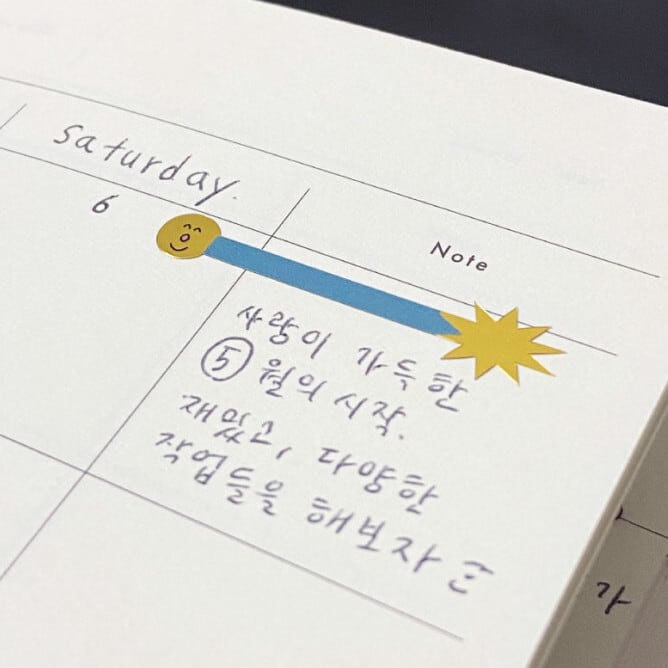 Saturday.
6
Note
사랑이 가득한
⑤월의 시작.
재밌고, 다양한
작업들을 해보자
가